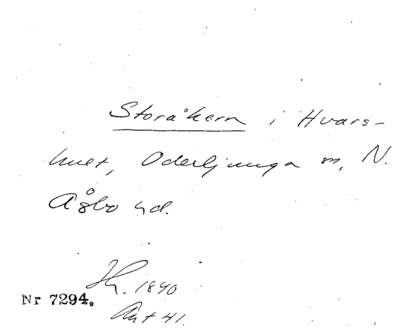 Storåkern i Hvars-
hult, Oderljunga sn, N.
Åsbo hd.
1840
Nr 7294.
41.